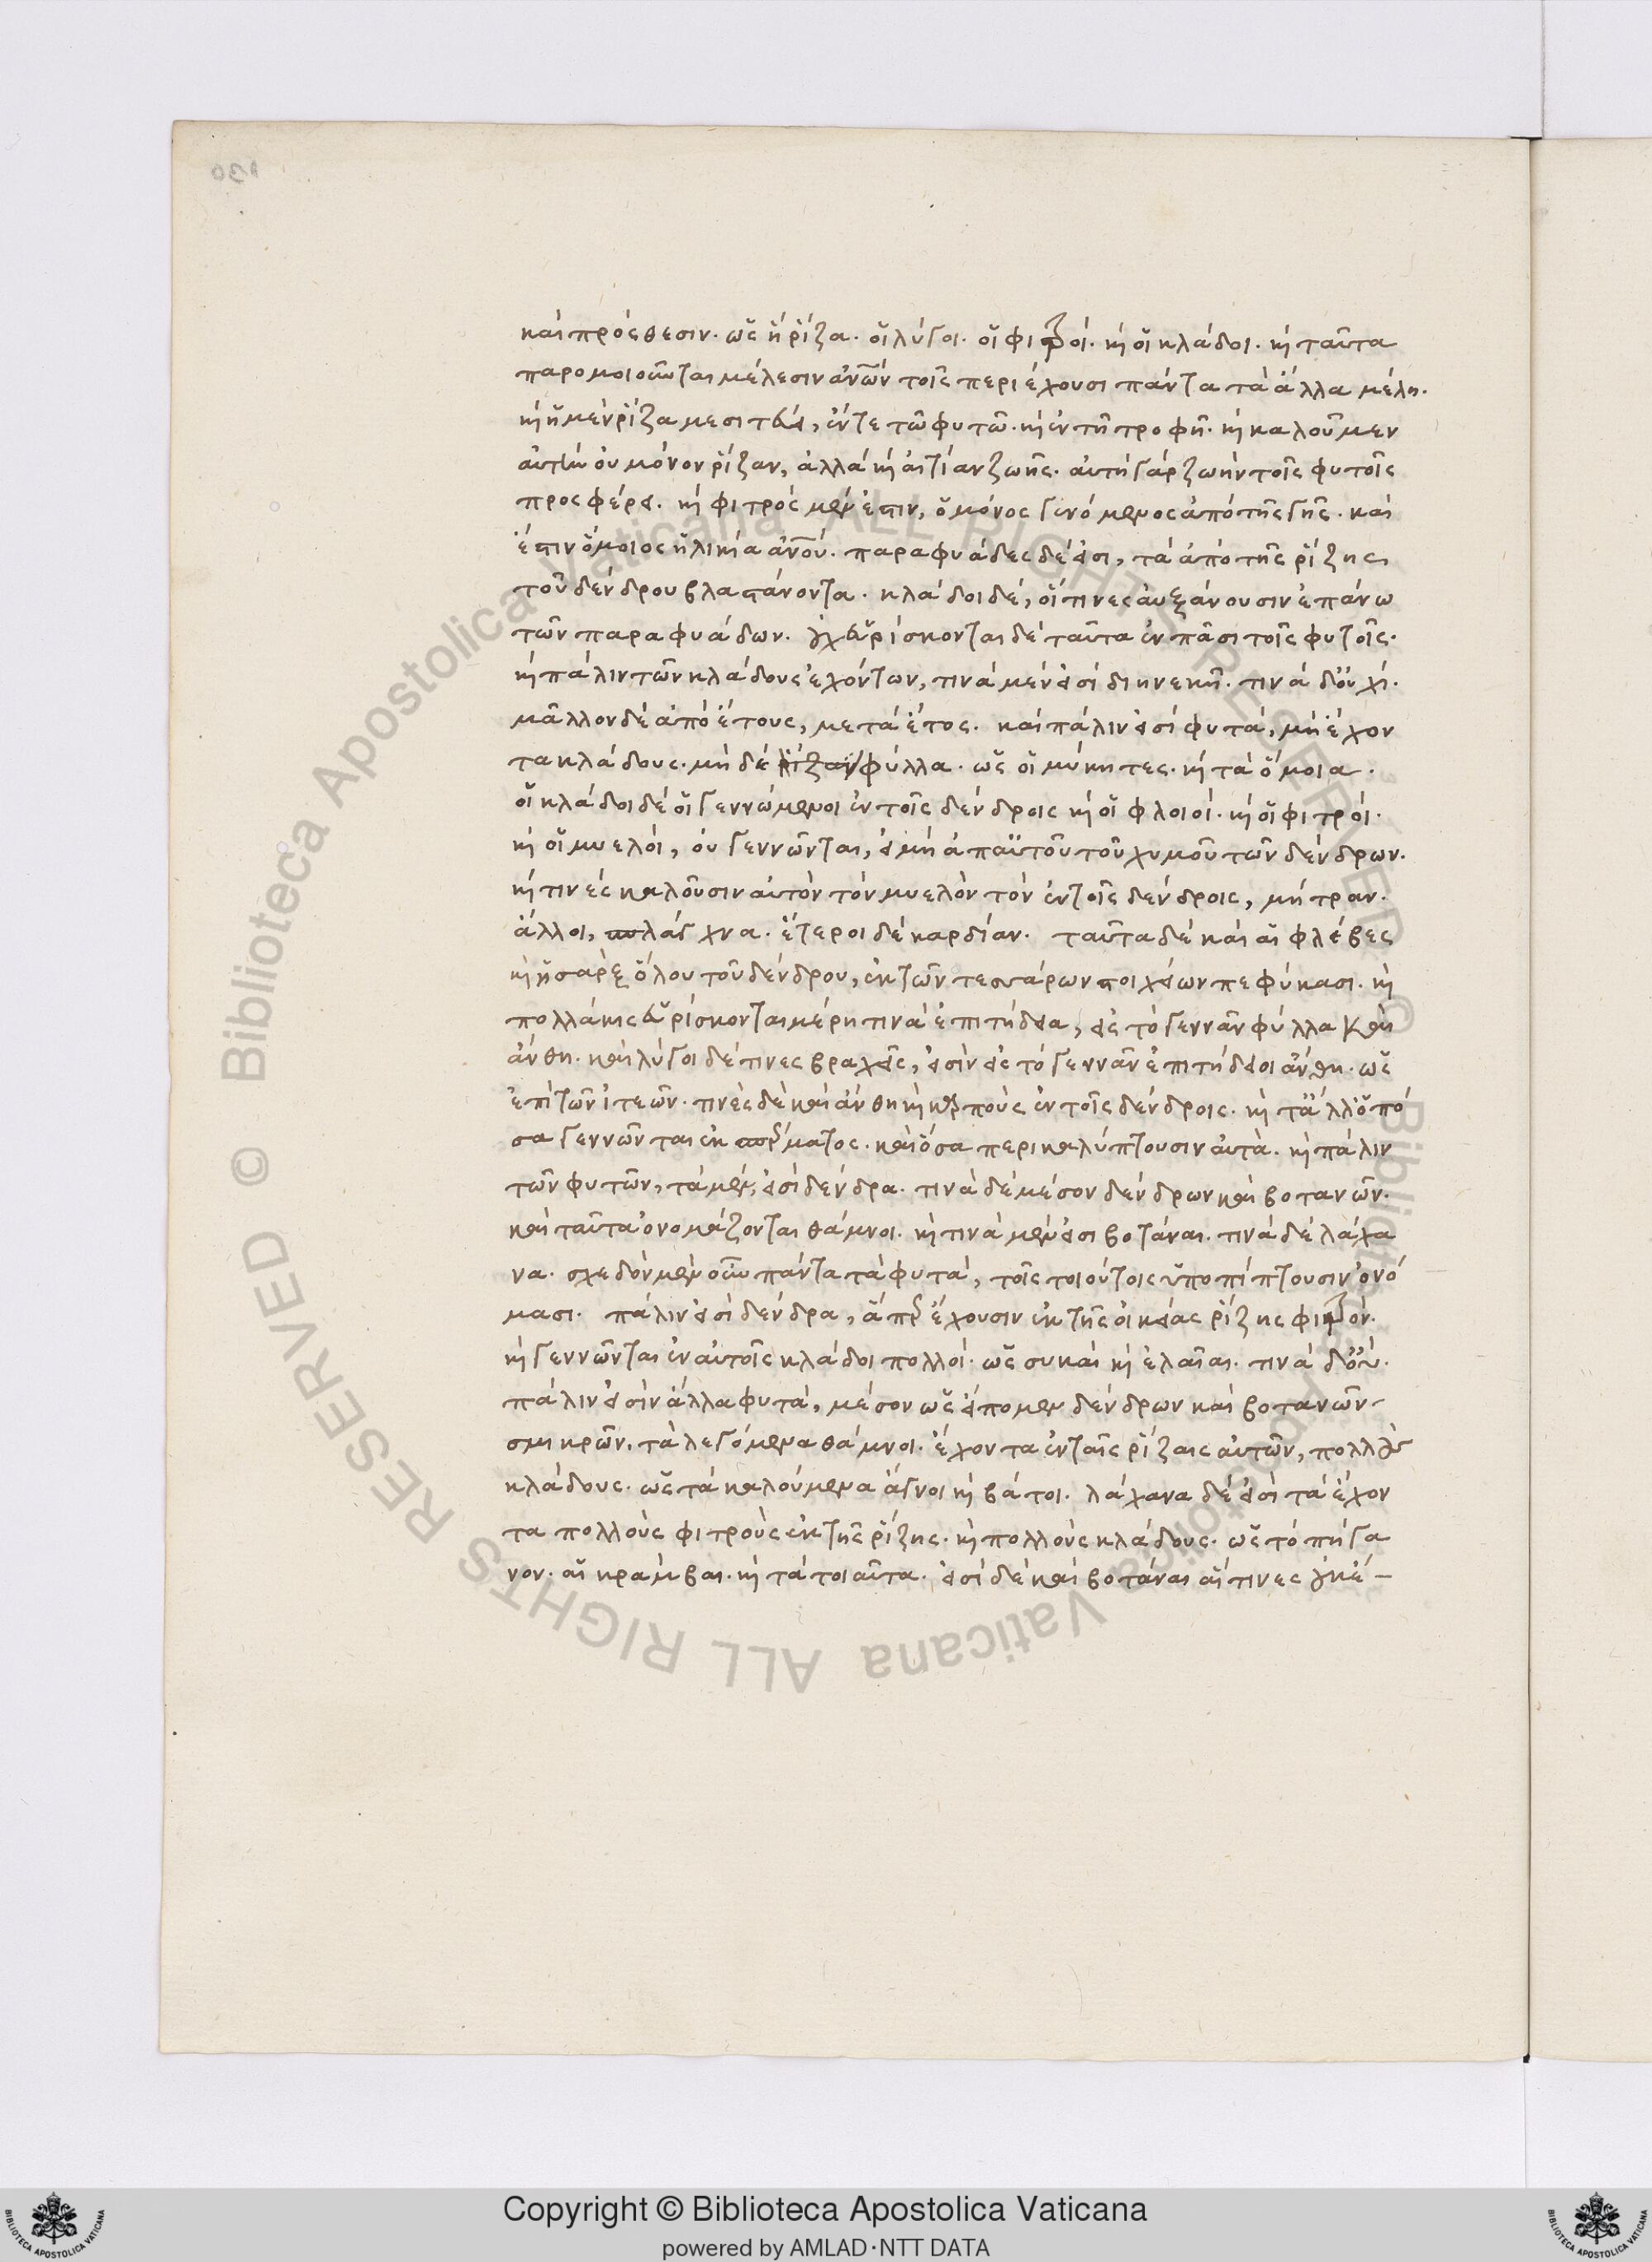 και πρόσθεσιν· ὡς ἡ ῥίζα· οἱ λύγοι· οἱ φιτροί· καὶ οἱ κλάδοι· καὶ ταῦτα
παρομοιοῦνται μέλεσιν ἀν̅ων τοῖς περιέχουσι πάντα τὰ ἄλλα μέλη·
καὶ ἡ μὲν ῥίζα μεσιτεύει, ἔν τε τῶ φυτῶ· καὶ ἐν τῆ τροφῆ· καὶ καλοῦμεν
αὐτὴν οὐ μόνον ῥίζαν, ἀλλὰ καὶ αἰτίαν ζωῆς· αὐτὴ γὰρ ζωὴν τοῖς φυτοῖς
προσφέρει· καὶ φιτρὸς μέν ἐστιν, ὁ μόνος γινόμενος ἀπὸ τῆς γῆς· καὶ
ἔστιν ὅμοιος ἡλικία ἀν̅ου· παραφυάδες δέ εἰσι, τὰ ἀπὸ τῆς ῥίζης
τοῦ δένδρου βλαστάνοντα· κλάδοι δέ, οἵτινες αὐξάνουσιν ἐπάνω
τῶν παραφυάδων· οὐχ εὑρίσκονται δὲ ταῦτα ἐν πᾶσι τοῖς φυτοῖς·
καὶ πάλιν τῶν κλάδους ἐχόντων, τινὰ μέν εἰσι διηνεκῆ· τινὰ δ' οὐχί·
μᾶλλον δὲ ἀπὸ ἔτους, μετὰ ἔτος· καὶ πάλιν εἰσὶ φυτά, μὴ ἔχον
τα κλάδους· μὴ δὲ ῥίζαν φύλλα· ὡς οἱ μύκητες· καὶ τὰ ὅμοια·
οἱ κλάδοι δὲ οἱ γεννώμενοι ἐν τοῖς δένδροις καὶ οἱ φλοιοί· καὶ οἱ φιτροί·
καὶ οἱ μυελοί, οὐ γεννῶνται, εἰ μὴ ἀπ' αὐτοῦ τοῦ χυμοῦ τῶν δένδρων·
καὶ τινὲς καλοῦσιν αὐτὸν τὸν μυελὸν τὸν ἐν τοῖς δένδροις, μήτραν·
ἄλλοι, σπλάγχνα· ἕτεροι δὲ καρδίαν· ταῦτα δὲ καὶ αἱ φλέβες
καὶ ἡ σὰρξ ὅλου τοῦ δένδρου, ἐκ τῶν τεσσάρων στοιχείων πεφύκασι· καὶ
πολλάκις εὑρίσκονται μέρη τινὰ ἐπιτήδεια, εἰς τὸ γεννᾶν φύλλα καὶ
ἄνθη· καὶ λύγοι δέ τινες βραχεῖς, εἰσὶν εἰς τὸ γεννᾶν ἐπιτήδειοι ἄνθη· ὡς
ἐπὶ τῶν ἰτεῶν· τινὲς δὲ καὶ ἄνθη καὶ καρποὺς ἐν τοῖς δένδροις· καὶ τἄλλ' ὁπό
σα γεννῶνται ἐκ σπέρματος· καὶ ὅσα περικαλύπτουσιν αὐτὰ· καὶ πάλιν
τῶν φυτῶν, τὰ μέν, εἰσὶ δένδρα· τινὰ δὲ μέσον δένδρων καὶ βοτανῶν·
καὶ ταῦτα ὀνομάζονται θάμνοι· καὶ τινὰ μέν εἰσι βοτάναι· τινὰ δὲ λάχα
να· σχεδὸν μὲν οὖν πάντα τὰ φυτά, τοῖς τοιούτοις ὑποπίπτουσιν ὀνό
μασι· πάλιν εἰσὶ δένδρα, ἅπερ ἔχουσιν ἐκ τῆς οἰκείας ῥίζης φιτρόν·
καὶ γεννῶνται ἐν αὐτοῖς κλάδοι πολλοί· ὡς συκαῖ καὶ ἐλαῖαι· τινὰ δ' οὔ·
πάλιν εἰσὶν ἄλλα φυτά, μέσον ὡς εἴπομεν δένδρων καὶ βοτανῶν
σμικρῶν· τὰ λεγόμενα θάμνοι· ἔχοντα ἐν ταῖς ῥίζαις αὐτῶν, πολλοὺς
κλάδους· ὡς τὰ καλούμενα ἄγνοι καὶ βάτοι· λάχανα δέ εἰσι τὰ ἔχον
τα πολλοὺς φιτροὺς ἐκ τῆς ῥίζης· καὶ πολλοὺς κλάδους· ὡς τὸ πήγα
νον· αἱ κράμβαι· καὶ τὰ τοιαῦτα· εἰσὶ δὲ καὶ βοτάναι αἵτινες οὐκ ἔ-
Copyright © Biblioteca Apostolica Vaticana
powered by AMLAD·NTT DATA